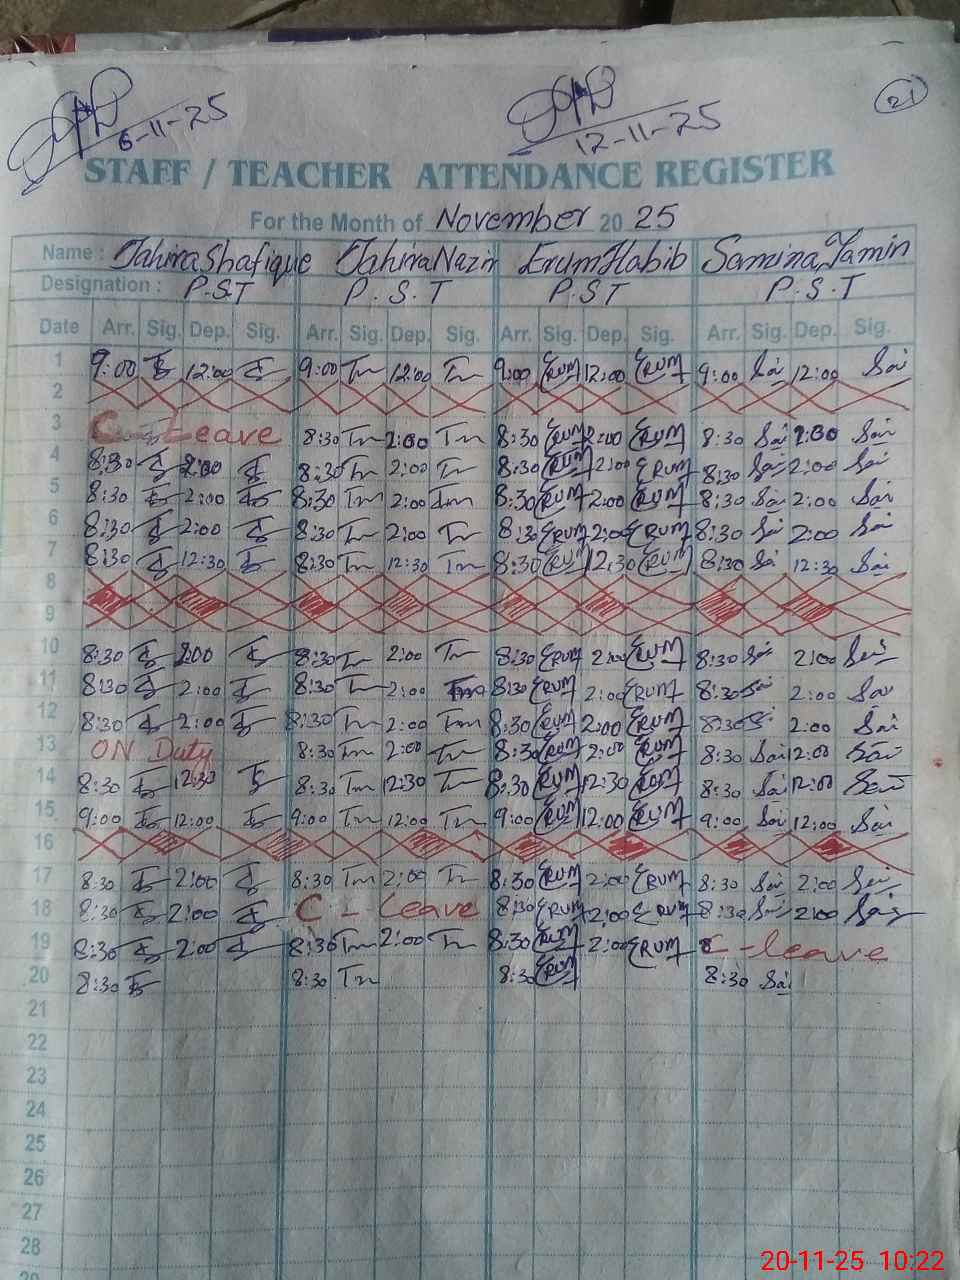 6-11-25 12-11-25 21
STAFF / TEACHER ATTENDANCE REGISTER
For the Month of November 20 25
Name : Tahira Shafique Tahira Nazir Erum Habib Samina Yamin
Designation : P.S.T P.S.T P.S.T P.S.T
Date Arr. Sig. Dep. Sig. Arr. Sig. Dep. Sig. Arr. Sig. Dep. Sig. Arr. Sig. Dep. Sig.
1 9:00 12:00 9:00 Tn 12:00 Tn 9:00 ERUM 12:00 ERUM 9:00 Sai 12:00 Sai
2
3 C Leave 8:30 Tn 2:00 Tn 8:30 ERUM 2:00 ERUM 8:30 Sai 2:00 Sai
4 8:30 2:00 8:30 Tn 2:00 Tn 8:30 ERUM 2:00 ERUM 8:30 Sai 2:00 Sai
5 8:30 2:00 8:30 Tn 2:00 Tn 8:30 ERUM 2:00 ERUM 8:30 Sai 2:00 Sai
6 8:30 2:00 8:30 Tn 2:00 Tn 8:30 ERUM 2:00 ERUM 8:30 Sai 2:00 Sai
7 8:30 12:30 8:30 Tn 12:30 Tn 8:30 ERUM 12:30 ERUM 8:30 Sai 12:30 Sai
8
9
10 8:30 2:00 8:30 Tn 2:00 Tn 8:30 ERUM 2:00 ERUM 8:30 Sai 2:00 Sai
11 8:30 2:00 8:30 Tn 2:00 Tn 8:30 ERUM 2:00 ERUM 8:30 Sai 2:00 Sai
12 8:30 2:00 8:30 Tn 2:00 Tn 8:30 ERUM 2:00 ERUM 8:30 Sai 2:00 Sai
13 ON Duty 8:30 Tn 2:00 Tn 8:30 ERUM 2:00 ERUM 8:30 Sai 12:00 Sai
14 8:30 12:30 8:30 Tn 12:30 Tn 8:30 ERUM 12:30 ERUM 8:30 Sai 12:00 Sai
15 9:00 12:00 9:00 Tn 12:00 Tn 9:00 ERUM 12:00 ERUM 9:00 Sai 12:00 Sai
16
17 8:30 2:00 8:30 Tn 2:00 Tn 8:30 ERUM 2:00 ERUM 8:30 Sai 2:00 Sai
18 8:30 2:00 C - Leave 8:30 ERUM 2:00 ERUM 8:30 Sai 2:00 Sai
19 8:30 2:00 8:30 Tn 2:00 Tn 8:30 ERUM 2:00 ERUM C-leave
20 8:30 8:30 Tn 8:30 ERUM 8:30 Sai
21
22
23
24
25
26
27
28
20-11-25 10:22